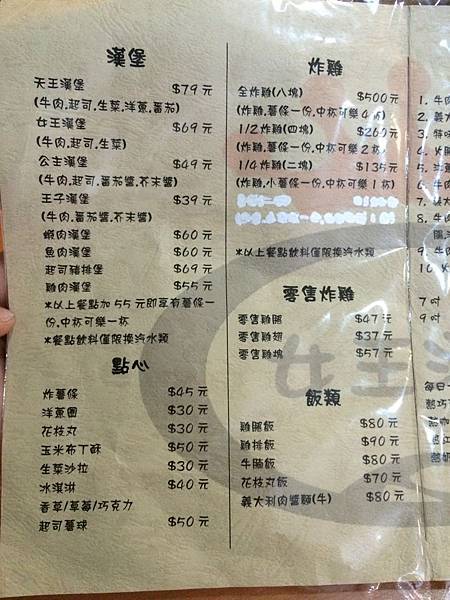 漢堡
天王漢堡 $79元
(牛肉.起司.生菜.洋蔥.蕃茄)
女王漢堡 $69元
(牛肉.起司.生菜)
公主漢堡 $49元
(牛肉.起司.蕃茄醬.芥末醬)
王子漢堡 $39元
(牛肉.蕃茄醬.芥末醬)
蝦肉漢堡 $60元
魚肉漢堡 $60元
起司豬排堡 $69元
雞肉漢堡 $55元
*以上餐點加55元即享有薯條一
份.中杯可樂一杯
*餐點飲料僅限換汽水類
點心
炸薯條 $45元
洋蔥圈 $30元
花枝丸 $30元
玉米布丁酥 $50元
生菜沙拉 $30元
冰淇淋 $40元
香草/草莓/巧克力
起司薯球 $50元
炸雞
全炸雞(八塊) $500元
(炸雞.薯條一份.中杯可樂4杯)
1/2炸雞(四塊) $260元
(炸雞.薯條一份.中杯可樂2杯)
1/4炸雞(二塊) $135元
(炸雞.小薯條一份.中杯可樂1杯)
*以上餐點飲料僅限換汽水類
零售炸雞
零售雞腿 $47元
零售雞翅 $37元
零售雞塊 $57元
飯類
雞腿飯 $80元
雞排飯 $90元
牛腩飯 $80元
花枝丸飯 $70元
義大利肉醬麵(牛) $80元
女王
1. 牛肉
2. 義大
3. 特
4.
5. 洋蔥
6. 牛肉
7. 義大
8. 牛肉
9.
10.
7吋
9吋
每日